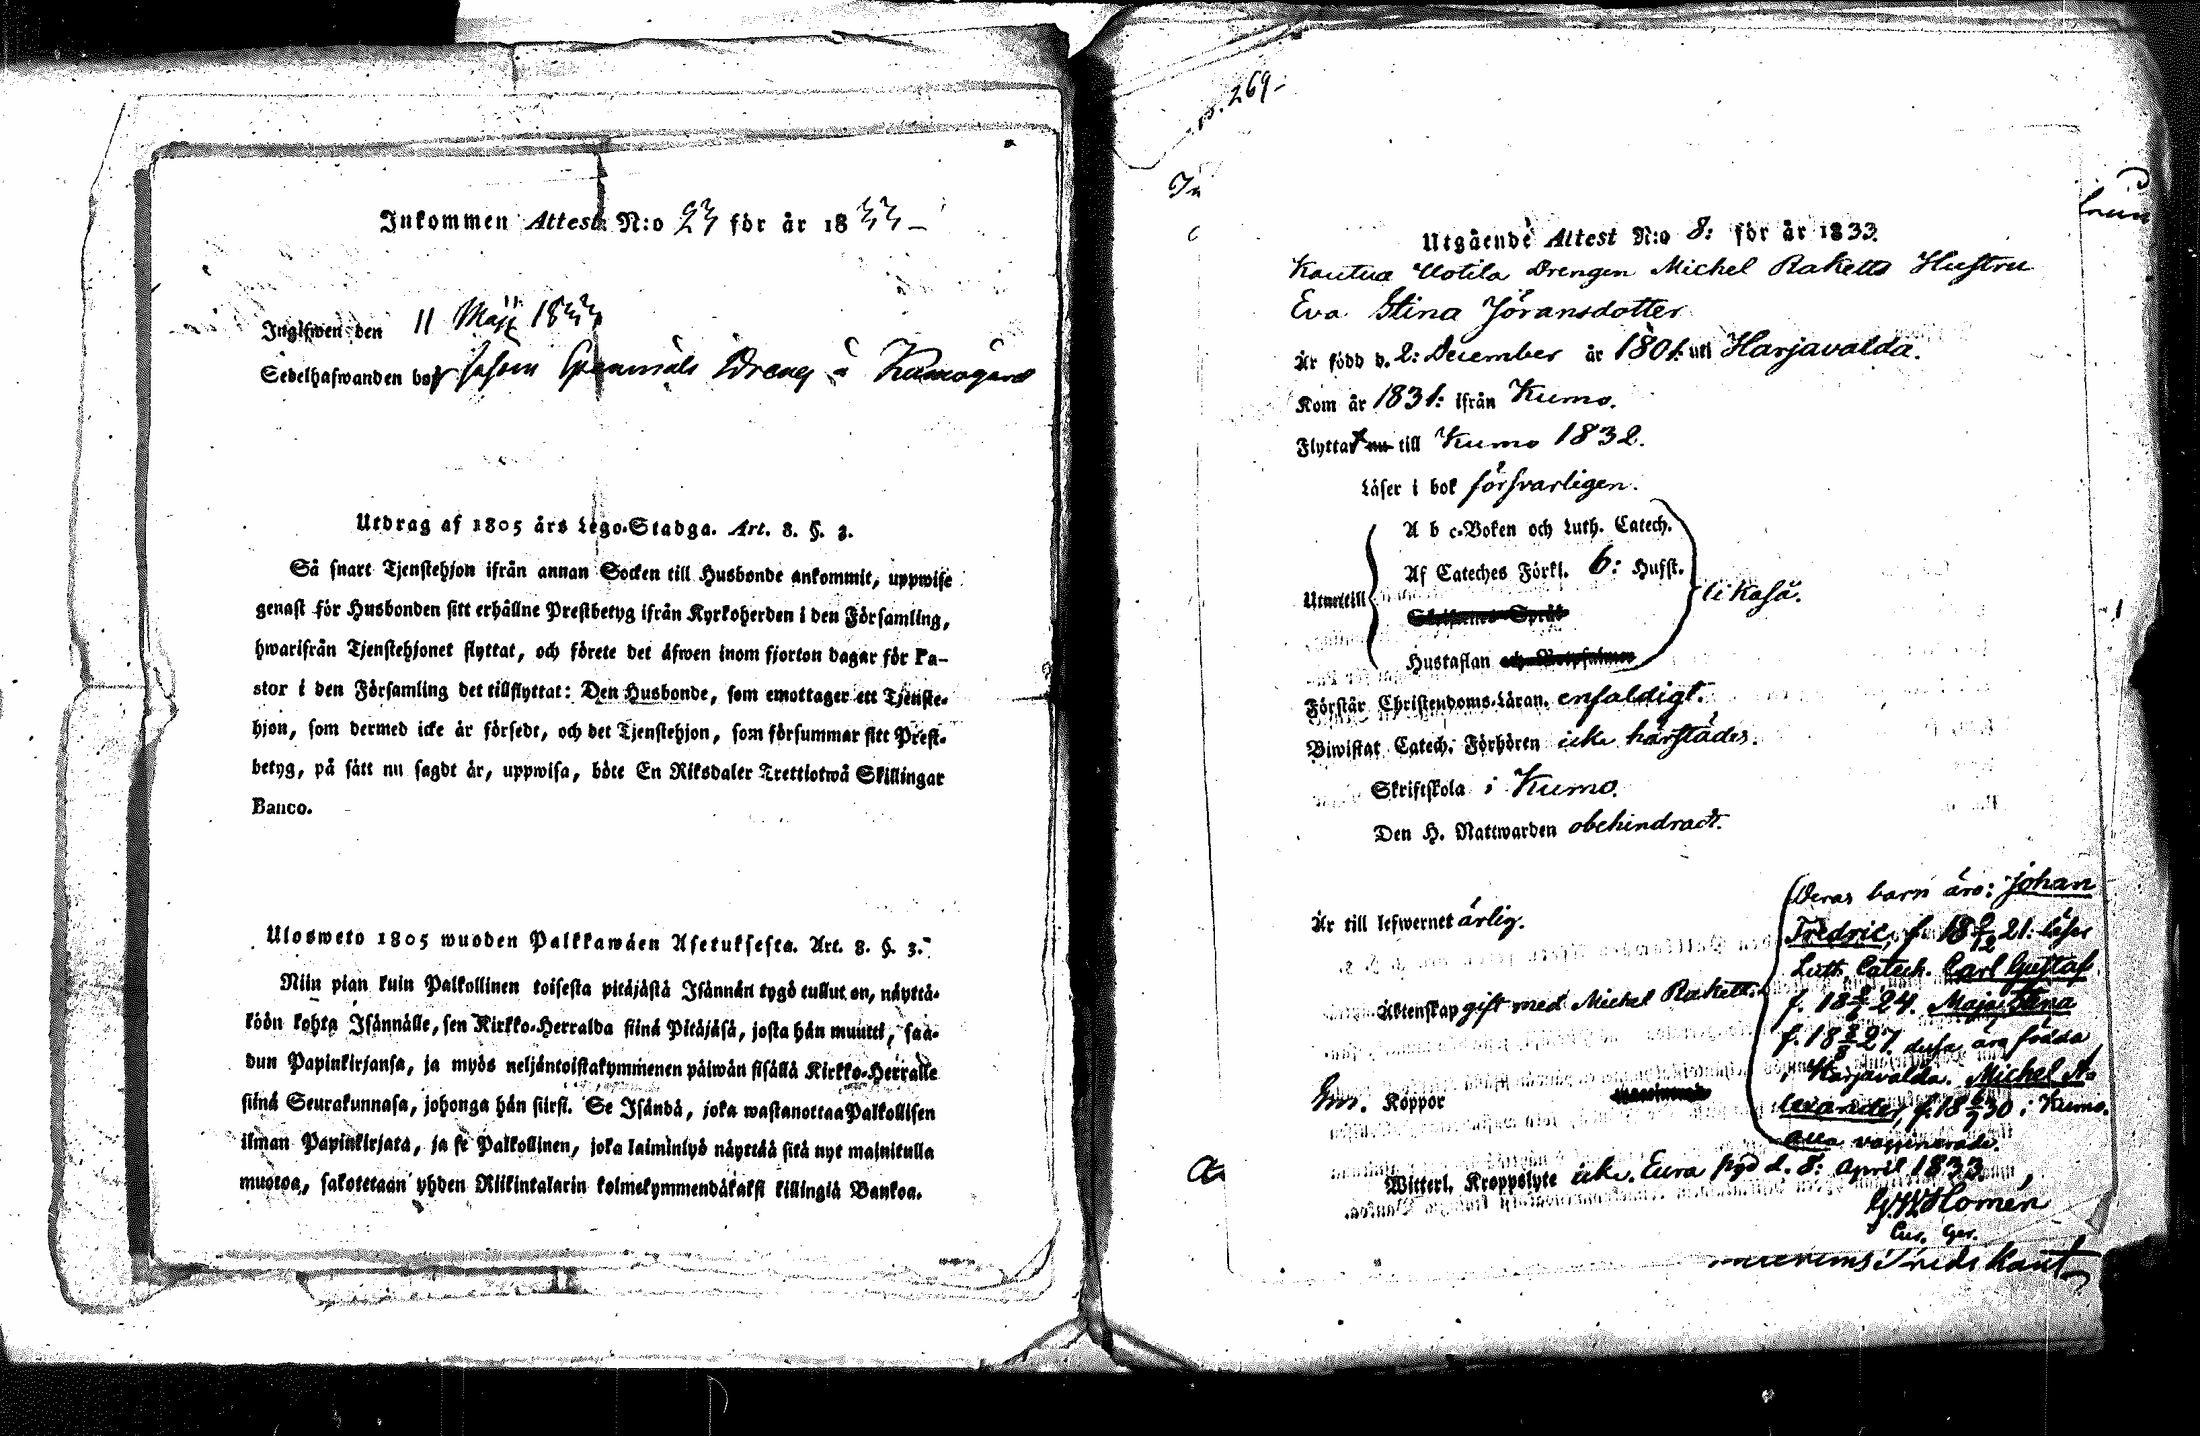 Inkommen Attest N:o 23 för år 1833
Ingifwen den 11 Maji 1833
Sedelhafwanden bor såsom Dreng å Kumogård
Utdrag af 1805 års Lego-Stadga. Art. 8. §. 3.
Så snart Tjenstehjon ifrån annan Socken till Husbonde ankommit, uppwise
genast för Husbonden sitt erhållne Prestbetyg ifrån Kyrkoherden i den Församling,
hwarifrån Tjenstehjonet flyttat, och förete det äfwen inom fjorton dagar för Pa-
stor i den Församling det tillflyttat: Den Husbonde, som emottager ett Tjenste-
hjon, som dermed icke är försedt, och det Tjenstehjon, som försummar sitt Prest-
betyg, på sätt nu sagdt är, uppwisa, böte En Riksdaler Trettiotwå Skillingar
Banco.
Ulosweto 1805 wuoden Palkkawäen Asetuksesta. Art. 8. §. 3.
Niin pian kuin Palkollinen toisesta pitäjästä Isännän tygö tullut on, näyttä-
köön kohta Isännälle, sen Kirkko-Herralda siinä Pitäjäsä, josta hän muutti, saa-
dun Papinkirjansa, ja myös neljäntoistakymmenen päiwän sisällä Kirkko-Herralle
siinä Seurakunnasa, johonga hän siirsi. Se Isändä, joka wastanottaa Palkollisen
ilman Papinkirjata, ja se Palkollinen, joka laiminlyö näyttää sitä nyt mainitulla
muotoa, sakotetaan yhden Riikintalarin kolmekymmendäkaksi killingiä Bankoa.
p. 269
Utgående Attest N:o 8: för år 1833.
Kautua Uotila Drengen Michel Raketts Hustru
Eva Stina Jöransdotter
Är född d. 2: December år 1801: uti Harjavalda.
Kom år 1831: ifrån Kumo.
Flyttat nu till Kumo 1832.
Läser i bok försvarligen.
A b c-Boken och Luth. Catech.
Af Cateches Förkl. 6: Hufst.
Utantill likaså.
Skriftenes Språk
Hustaflan och Botpsalmer
Förstår Christendoms-Läran. enfaldigt.
Biwistat Catech. Förhören icke härstädes.
Skriftskola i Kumo.
Den H. Nattwarden obehindradt.
Är till lefwernet ärlig.
Äktenskap gift med Michel Rakett.
(Deras barn äro: Johan
Fredric, f. 18 21: läser
Luth. Catech. Carl Gustaf
f. 18 24. Maja Stina
f. 18 27 dessa äro födda
i Harjavalda. Michel A-
lexander, f. 18 30 i Kumo.
alla vaccinerade.
Koppor
Witterl. Kroppslyte icke. Eura pgd d. 8: April 1833.
G.W. Homén
Cur. Ger.